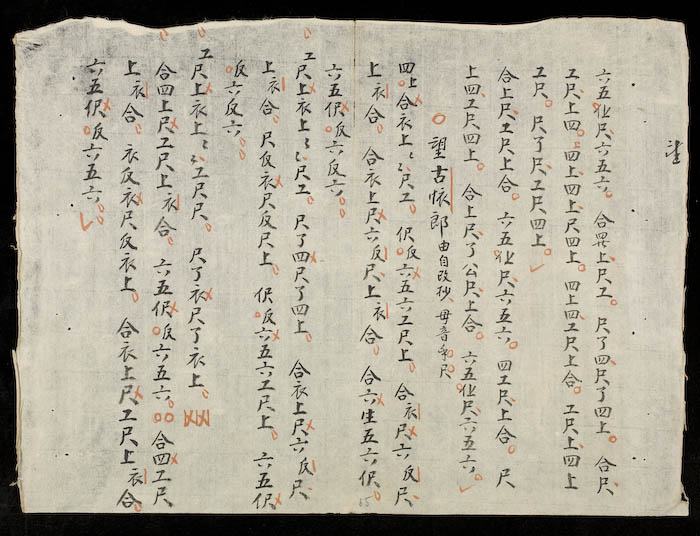 六五尺六五六 合上尺工 尺了四尺了四上 合尺
工尺上四 四上四上尺四上 四上四工尺上合 工尺上四上
工尺 尺了尺工尺四上
合上尺工尺上合 六五尺六五六 四工尺上合 尺
上四工尺四上 合上尺了公尺上合 六五尺六五六
望古懷郎 由自改抄 毋音尺
四上合衣上〻尺工 伬反六五六工尺上 合衣尺六反尺
上衣合 合衣上尺六反尺上衣合 合六生五六伬
六五伬反六反六
工尺上衣上〻尺工 尺了四尺了四上 合衣上尺六反尺
上衣合 尺反衣尺反尺上 伬反六五六工尺上 六五伬
反六反六
工尺上衣上〻工尺尺 尺了衣尺了衣上
合四上尺工尺上衣合 六五伬反六五六 合四工尺
上衣合 衣反衣尺反衣上 合衣上尺工尺上衣合
六五伬反六五六